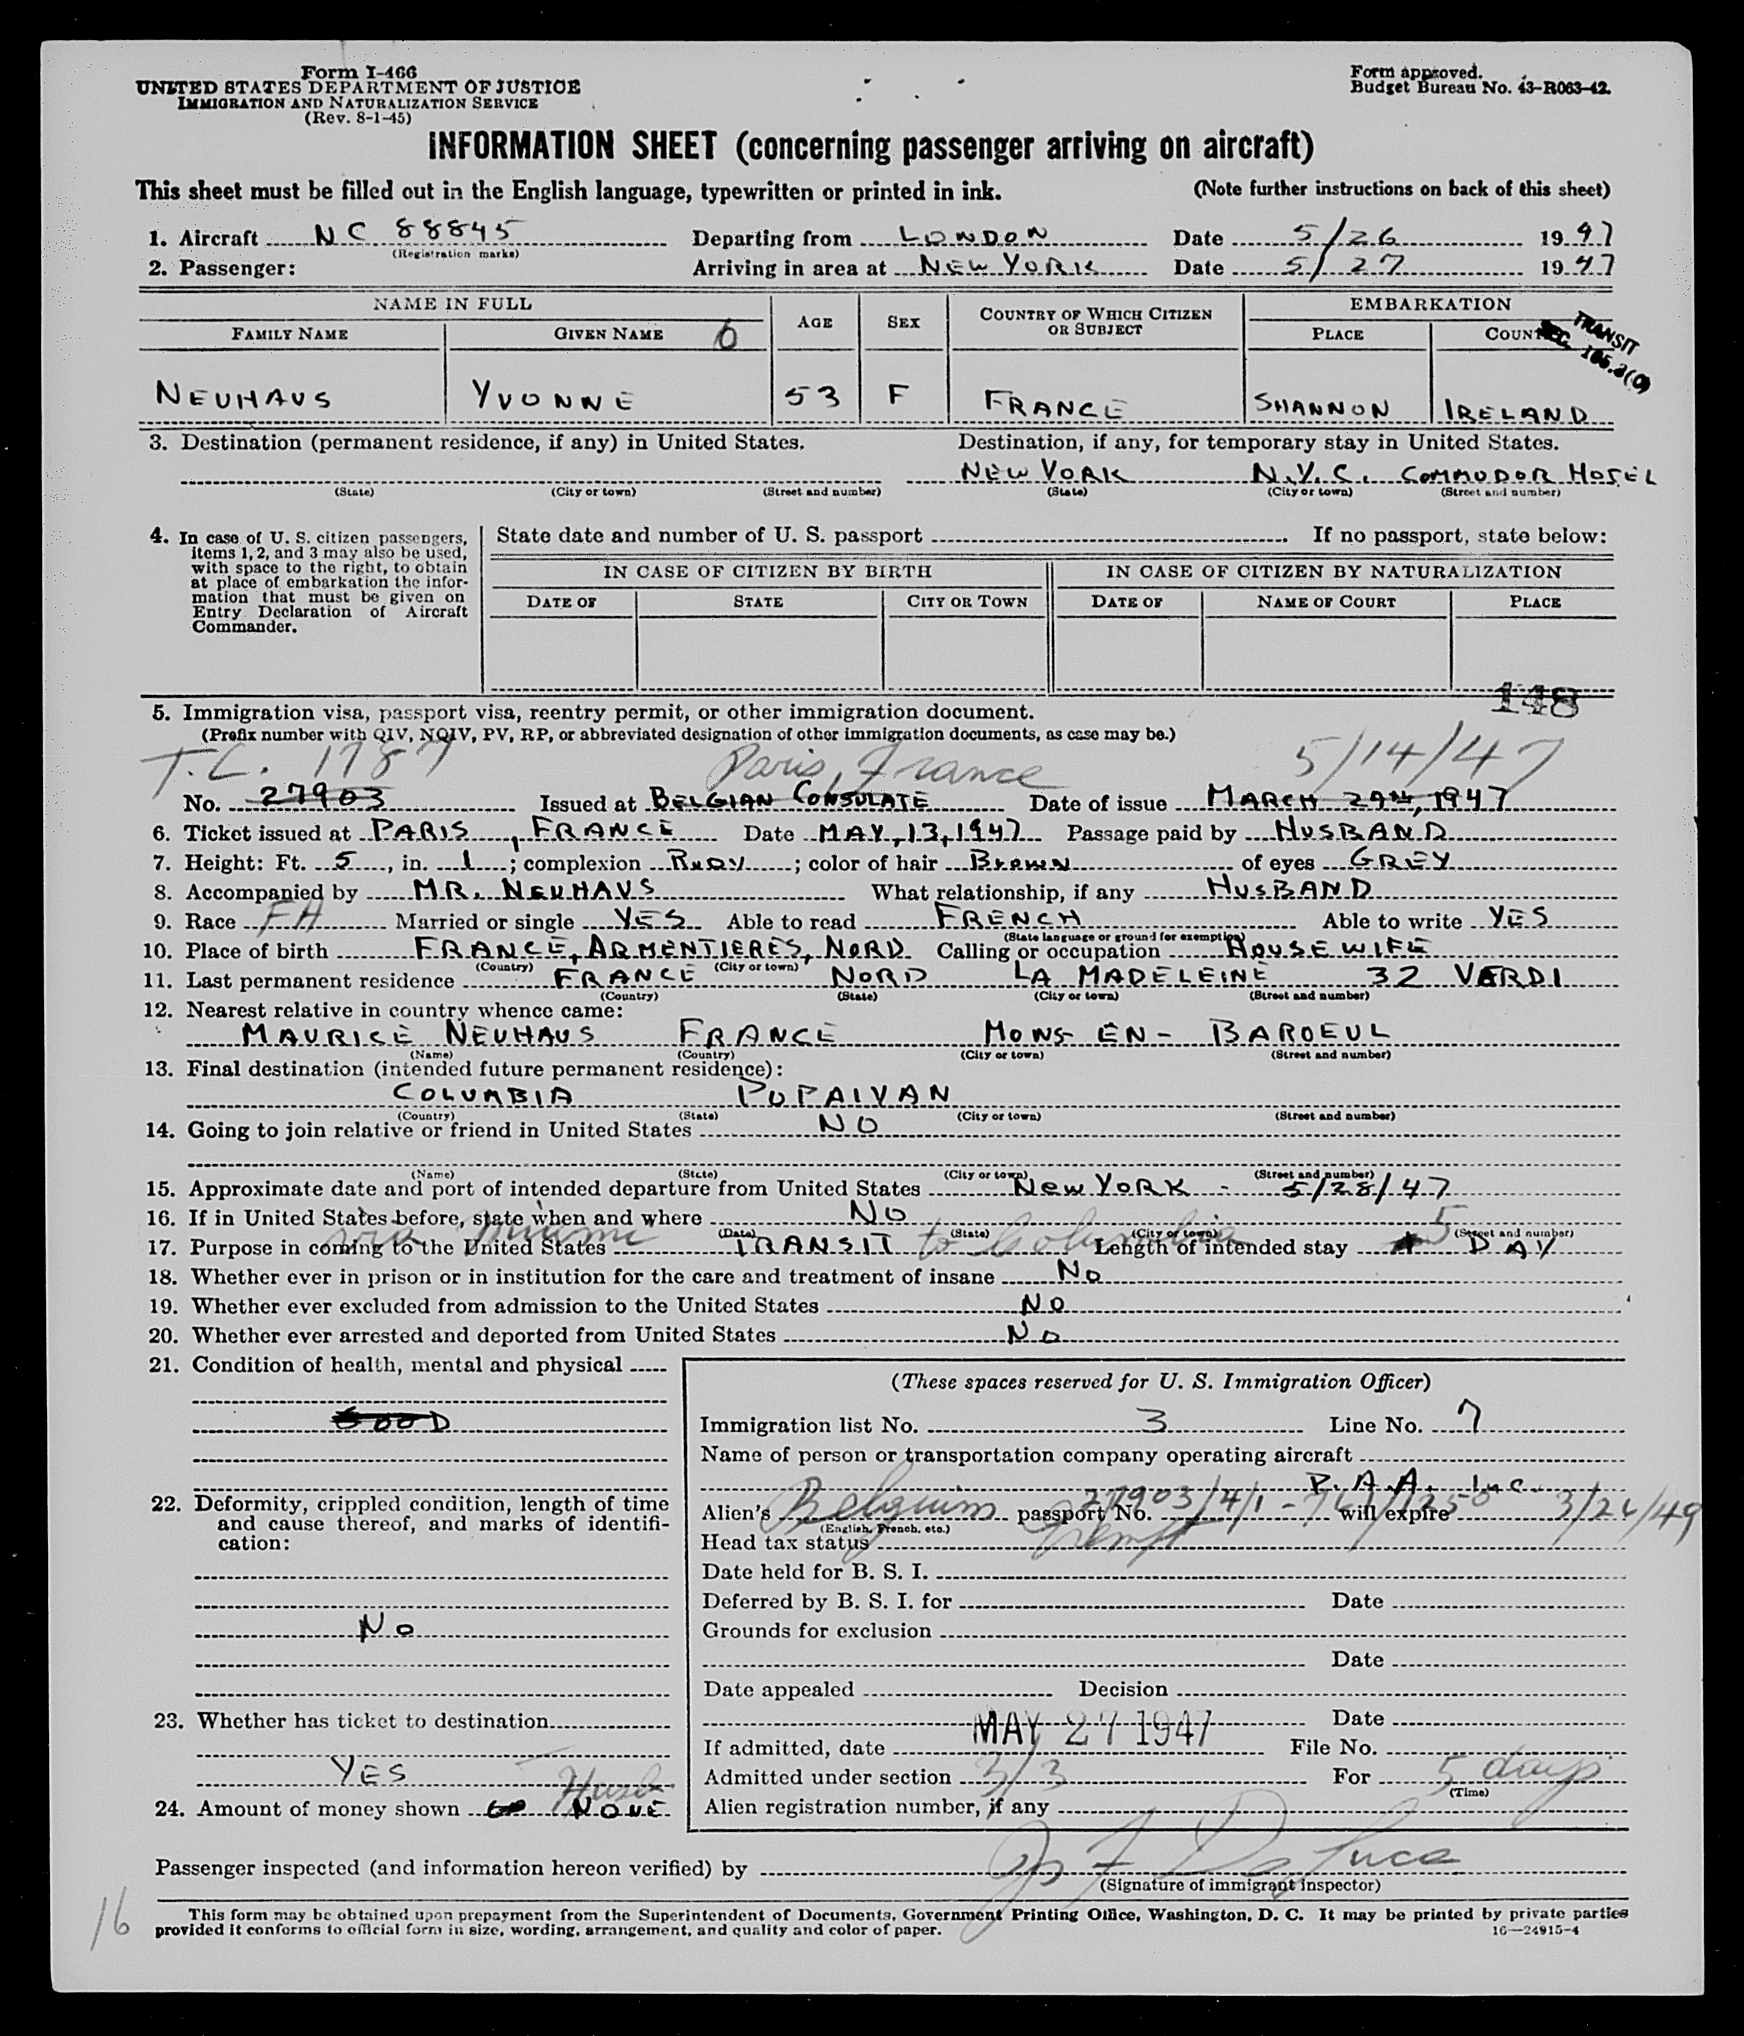 Form I-466
UNITED STATES DEPARTMENT OF JUSTICE
IMMIGRATION AND NATURALIZATION SERVICE
(Rev. 8-1-45)
Form approved.
Budget Bureau No. 43-R063-42.
INFORMATION SHEET (concerning passenger arriving on aircraft)
This sheet must be filled out in the English language, typewritten or printed in ink. (Note further instructions on back of this sheet)
1. Aircraft NC 88845 Departing from LONDON Date 5/26 1947
(Registration marks)
2. Passenger: Arriving in area at NEW YORK Date 5/27 1947
NAME IN FULL AGE SEX COUNTRY OF WHICH CITIZEN OR SUBJECT EMBARKATION
FAMILY NAME GIVEN NAME PLACE
TRANSIT
SEC. 165.2(0)
NEUHAUS YVONNE 53 F FRANCE SHANNON IRELAND
3. Destination (permanent residence, if any) in United States. Destination, if any, for temporary stay in United States.
NEW YORK N.Y.C. COMMODOR HOTEL
(State) (City or town) (Street and number) (State) (City or town) (Street and number)
4. In case of U. S. citizen passengers, items 1, 2, and 3 may also be used, with space to the right, to obtain at place of embarkation the information that must be given on Entry Declaration of Aircraft Commander.
State date and number of U. S. passport If no passport, state below:
IN CASE OF CITIZEN BY BIRTH IN CASE OF CITIZEN BY NATURALIZATION
DATE OF STATE CITY OR TOWN DATE OF NAME OF COURT PLACE
148
5. Immigration visa, passport visa, reentry permit, or other immigration document.
(Prefix number with QIV, NQIV, PV, RP, or abbreviated designation of other immigration documents, as case may be.)
T.C. 1787 Paris, France 5/14/47
No. 27903 Issued at BELGIAN CONSULATE Date of issue MARCH 29th, 1947
6. Ticket issued at PARIS, FRANCE Date MAY, 13, 1947 Passage paid by HUSBAND
7. Height: Ft. 5, in. 1; complexion RUDY; color of hair BROWN of eyes GREY
8. Accompanied by MR. NEUHAUS What relationship, if any HUSBAND
9. Race FH Married or single YES Able to read FRENCH Able to write YES
(State language or ground for exemption)
10. Place of birth FRANCE, ARMENTIERES, NORD Calling or occupation HOUSEWIFE
(Country) (City or town)
11. Last permanent residence FRANCE NORD LA MADELEINE 32 VERDI
(Country) (State) (City or town) (Street and number)
12. Nearest relative in country whence came:
MAURICE NEUHAUS FRANCE MONS-EN-BAROEUL
(Name) (Country) (City or town) (Street and number)
13. Final destination (intended future permanent residence):
COLUMBIA POPAIVAN
(Country) (State) (City or town) (Street and number)
14. Going to join relative or friend in United States NO
(Name) (State) (City or town) (Street and number)
15. Approximate date and port of intended departure from United States NEW YORK - 5/28/47
16. If in United States before, state when and where NO
(Date) (State) (City or town) (Street and number)
via Miami
17. Purpose in coming to the United States TRANSIT to Columbia Length of intended stay 5 DAY
18. Whether ever in prison or in institution for the care and treatment of insane NO
19. Whether ever excluded from admission to the United States NO
20. Whether ever arrested and deported from United States NO
21. Condition of health, mental and physical
GOOD
22. Deformity, crippled condition, length of time and cause thereof, and marks of identification:
NO
23. Whether has ticket to destination
YES
24. Amount of money shown NONE
(These spaces reserved for U. S. Immigration Officer)
Immigration list No. 3 Line No. 7
Name of person or transportation company operating aircraft
P.A.A. Inc.
Alien's Belgium passport No. 27903/4/1 will expire 3/26/49
(English, French, etc.)
Head tax status Exempt
Date held for B. S. I.
Deferred by B. S. I. for Date
Grounds for exclusion
Date
Date appealed Decision
Date
If admitted, date MAY 27 1947 File No.
Admitted under section 3/3 For 5 days
(Time)
Alien registration number, if any
Passenger inspected (and information hereon verified) by
(Signature of immigrant inspector)
16
This form may be obtained upon prepayment from the Superintendent of Documents, Government Printing Office, Washington, D. C. It may be printed by private parties
provided it conforms to official form in size, wording, arrangement, and quality and color of paper. 16—24915-4